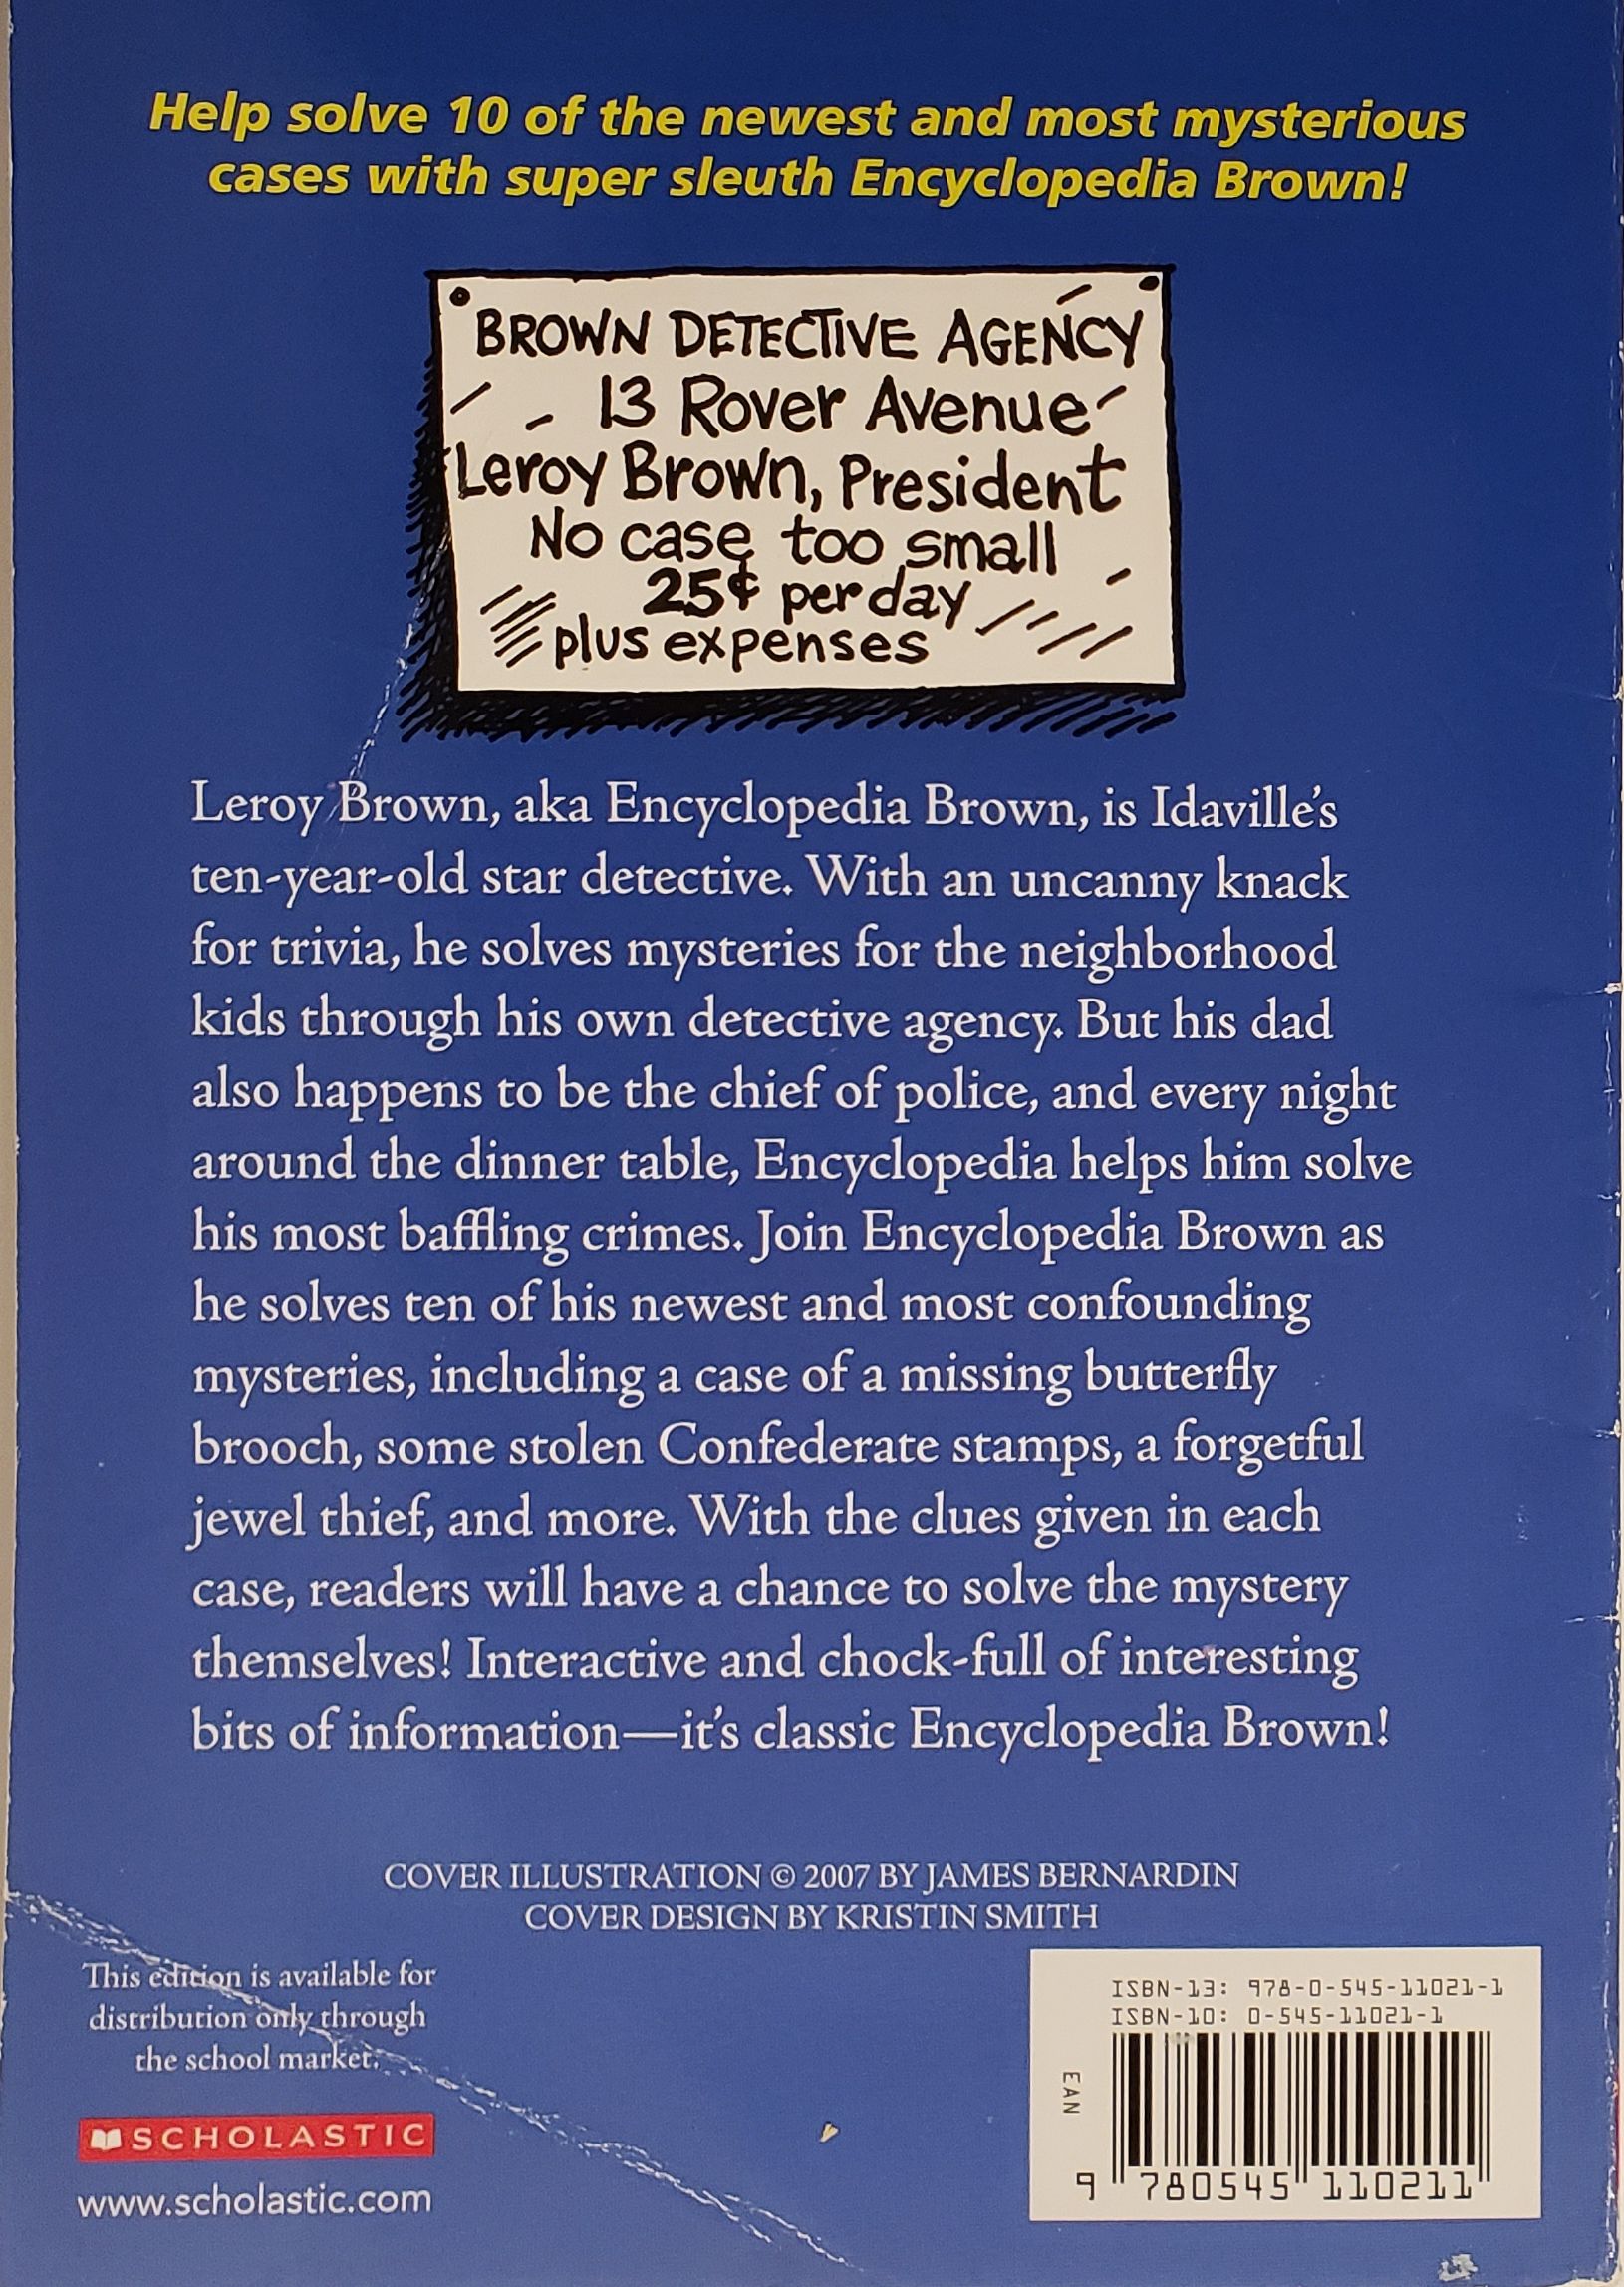 Help solve 10 of the newest and most mysterious
cases with super sleuth Encyclopedia Brown!
BROWN DETECTIVE AGENCY
13 Rover Avenue
Leroy Brown, President
No case too small
25¢ per day
plus expenses
Leroy Brown, aka Encyclopedia Brown, is Idaville's
ten-year-old star detective. With an uncanny knack
for trivia, he solves mysteries for the neighborhood
kids through his own detective agency. But his dad
also happens to be the chief of police, and every night
around the dinner table, Encyclopedia helps him solve
his most baffling crimes. Join Encyclopedia Brown as
he solves ten of his newest and most confounding
mysteries, including a case of a missing butterfly
brooch, some stolen Confederate stamps, a forgetful
jewel thief, and more. With the clues given in each
case, readers will have a chance to solve the mystery
themselves! Interactive and chock-full of interesting
bits of information—it's classic Encyclopedia Brown!
COVER ILLUSTRATION © 2007 BY JAMES BERNARDIN
COVER DESIGN BY KRISTIN SMITH
This edition is available for
distribution only through
the school market.
SCHOLASTIC
www.scholastic.com
ISBN-13: 978-0-545-11021-1
ISBN-10: 0-545-11021-1
EAN
9 780545 110211